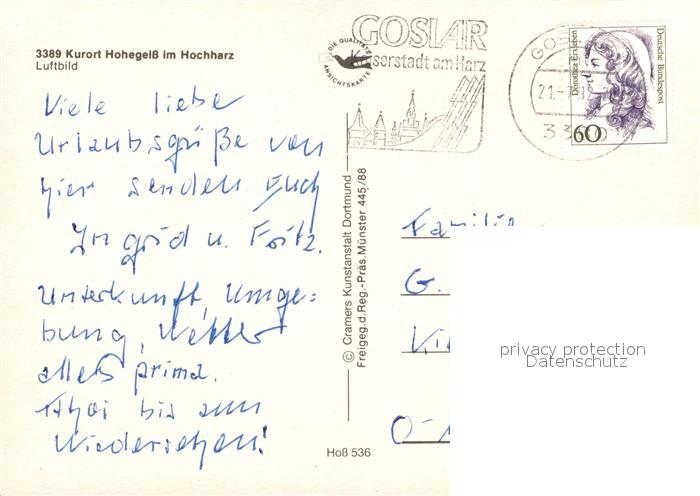 3389 Kurort Hohegeiß im Hochharz
Luftbild
DIE QUALITÄTS
ANSICHTSKARTE
GOSLAR
Kaiserstadt am Harz
GOS
21.-7.
33
Dorothea Erxleben
Deutsche Bundespost
60
Viele liebe
Urlaubsgrüße von
hier senden Euch
Ingrid u. Fritz.
Unterkunft, Umge=
bung, Wetter
alles prima.
Ahoi bis zum
Wiedersehen!
© Cramers Kunstanstalt Dortmund
Freigeg.d.Reg.-Präs.Münster 445/88
Hoß 536
Familie
G.
O-
privacy protection
Datenschutz